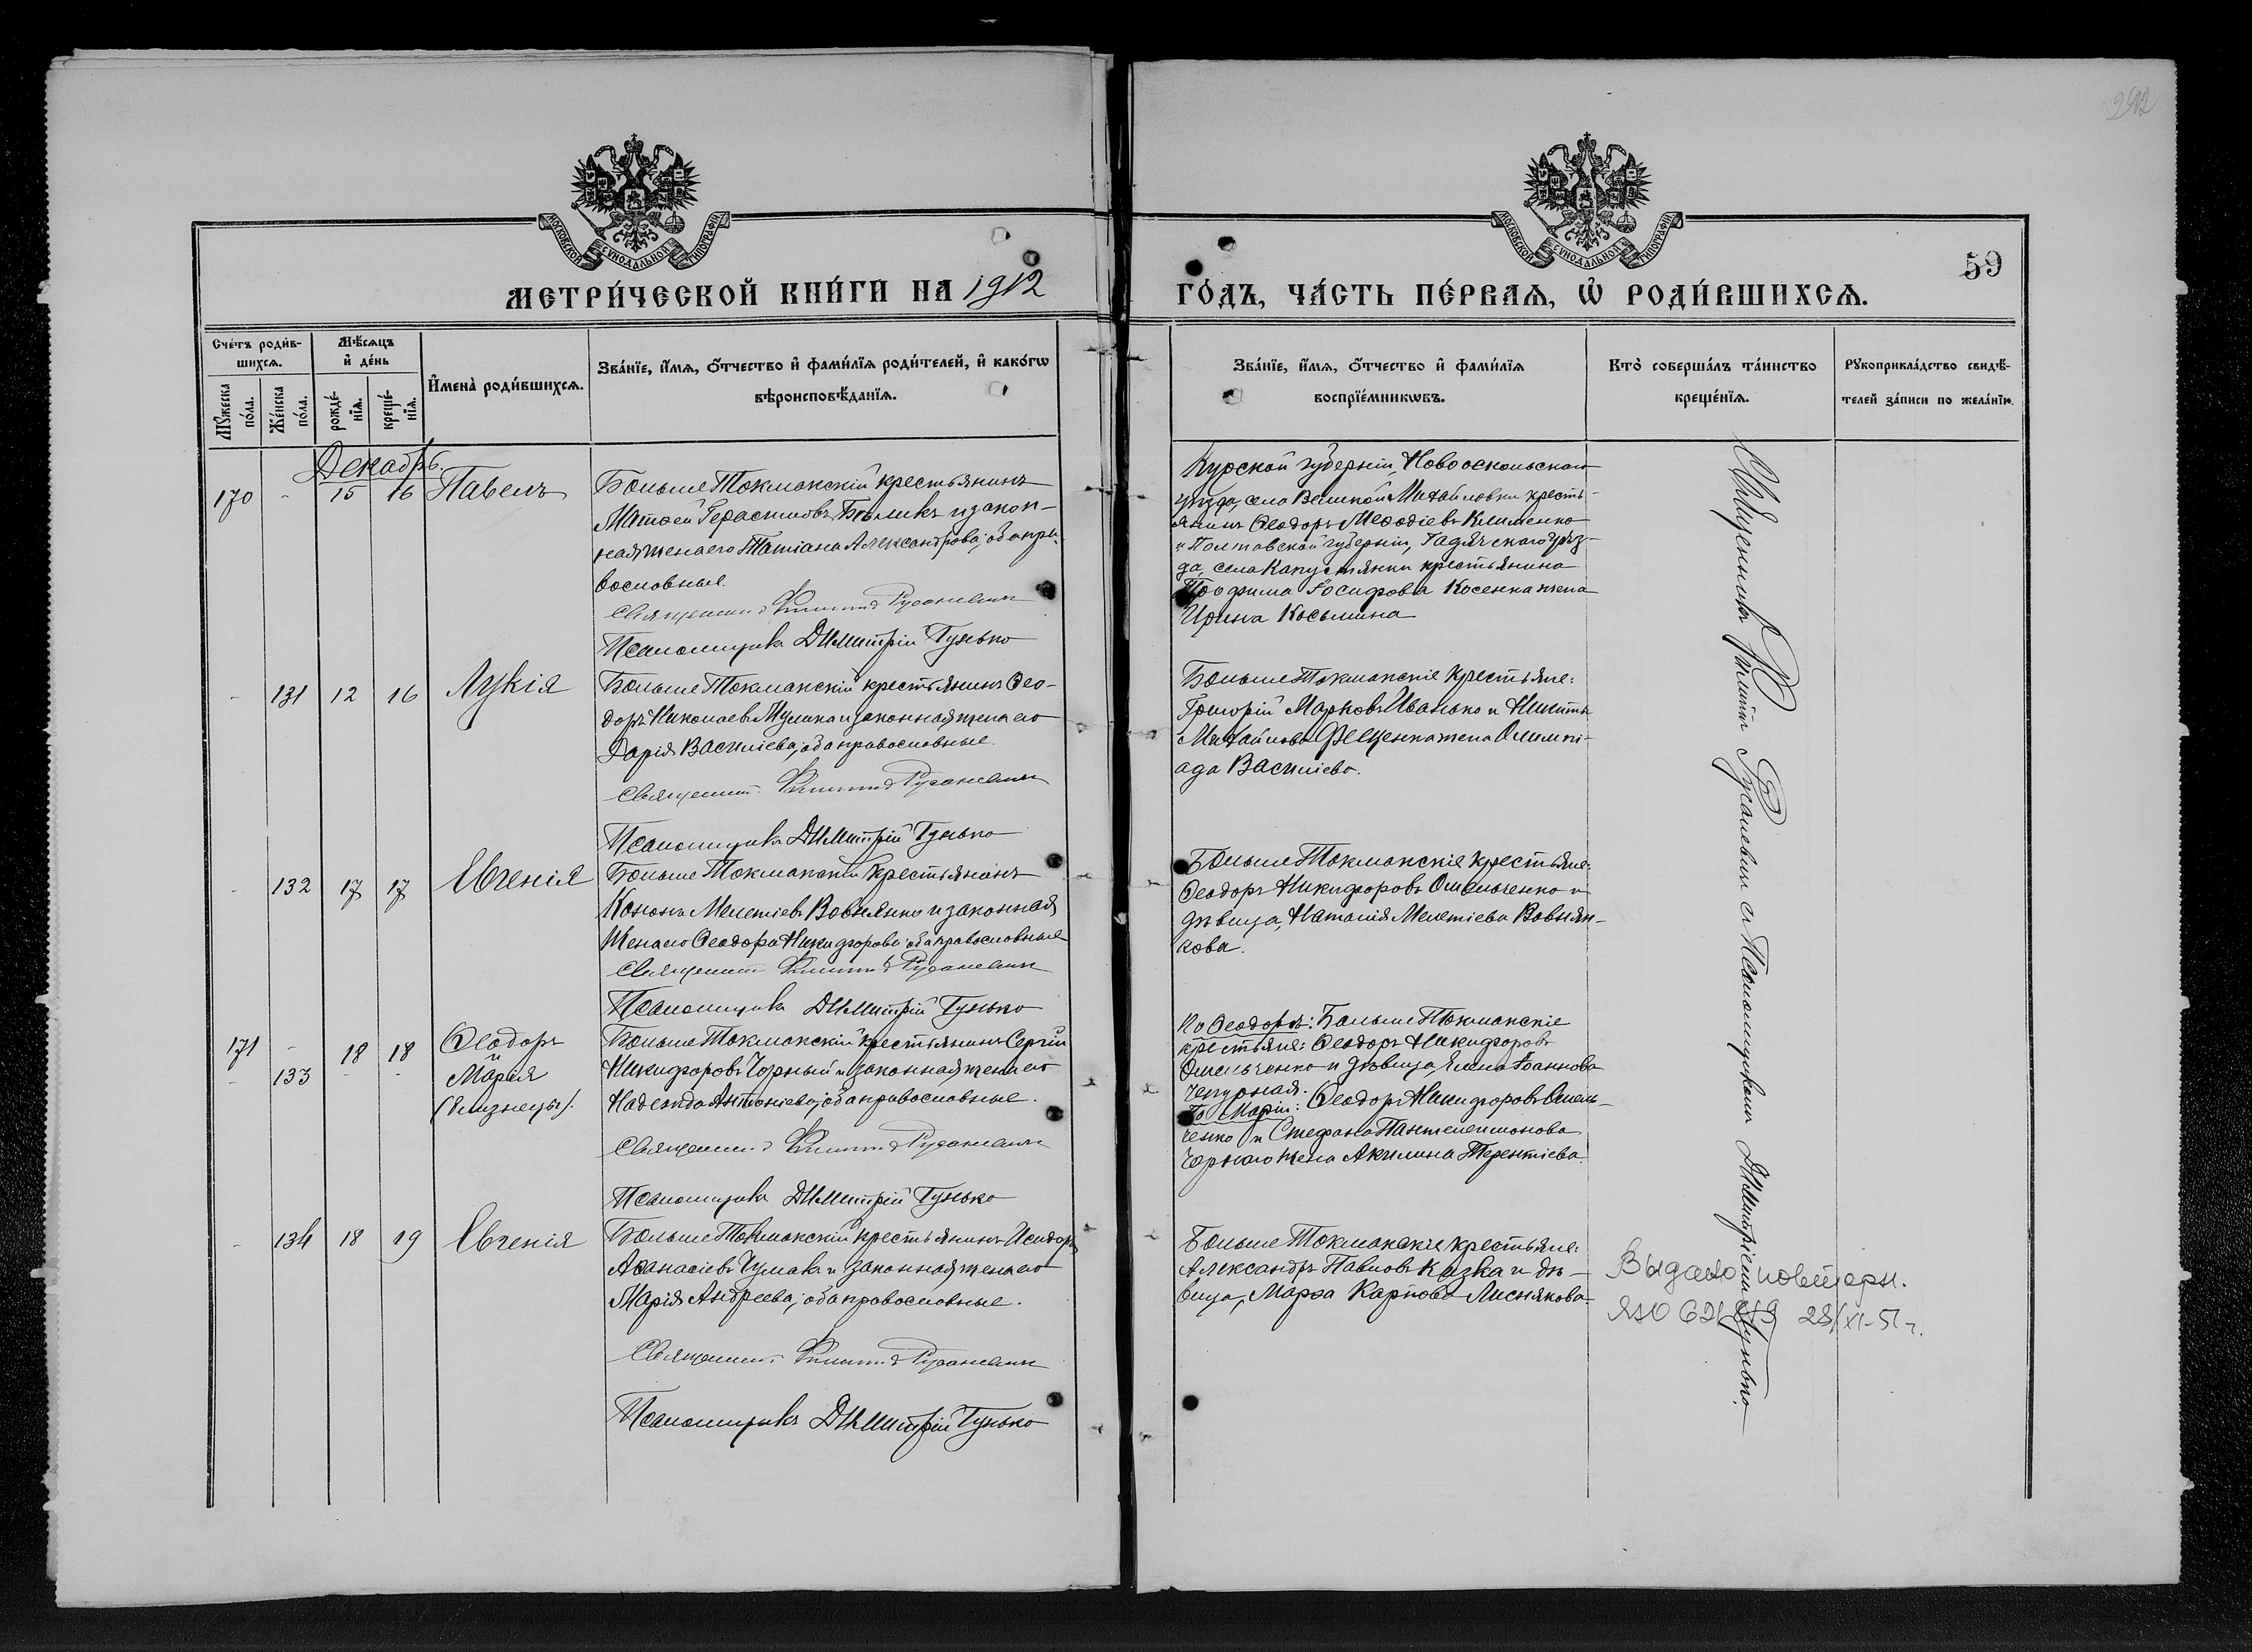 292
МОСКОВСКОЙ СѴНОДАЛЬНОЙ ТИПОГРАФІИ
МОСКОВСКОЙ СѴНОДАЛЬНОЙ ТИПОГРАФІИ
59
МЕТРИ́ЧЕСКОЙ КНИ́ГИ НА 1912
ГО́ДЪ, ЧА́СТЬ ПЕ́РВАѦ, Ѽ РОДИ́ВШИХСѦ.
Сче́тъ роди́в-
шихсѧ.
Мꙋ́жеска по́ла.
Же́нска по́ла.
Мѣ́сѧцъ
и҆ де́нь
рожде́-
нїѧ.
креще́-
нїѧ.
И҆мена̀ роди́вшихсѧ.
Зва́нїе, и҆́мѧ, ѻ҆́тчество и҆ фами́лїѧ роди́телей, и҆ како́гѡ
вѣроисповѣ́данїѧ.
Зва́нїе, и҆́мѧ, ѻ҆́тчество и҆ фами́лїѧ
воспрїе́мникѡвъ.
Кто̀ соверша́лъ та́инство
креще́нїѧ.
Рꙋкоприкла́дство свидѣ́-
телей за́писи по жела́нїю.
Декабрь.
170 - 15 16 Павелъ
Больше Токмакскій крестьянинъ
Матѳей Герасимовъ и закон-
ная жена его Татіана Александрова; оба пра-
вославные.
Священникъ Филиппъ Русаневичъ
Псаломщикъ Димитрій Гунько
Курской губерніи, Новооскольскаго
уѣзда, села Великой Михайловки кресть-
янинъ Ѳеодоръ Меѳодіевъ Клименко
и Полтавской губерніи, Гадячскаго уѣз-
да, села Капустянки крестьянина
Трофима Іосифова Косенка жена
Ирина Косьмина
- 131 12 16 Лукія
Больше Токмакскій крестьянинъ Ѳео-
доръ Николаевъ Мулика и законная жена его
Дарія Василіева; оба православные.
Священникъ Филиппъ Русаневичъ
Псаломщикъ Димитрій Гунько
Больше Токмакскіе крестьяне:
Григорій Марковъ Иванько и Никиты
Михайлова Фещенка жена Олимпі-
ада Василіева.
- 132 17 17 Евгенія
Больше Токмакскій крестьянинъ
Кононъ Мелетіевъ Вовнянко и законная
жена его Ѳеодора Никифорова; оба православные
Священникъ Филиппъ Русаневичъ
Псаломщикъ Димитрій Гунько
Больше Токмакскіе крестьяне:
Ѳеодоръ Никифоровъ Омельченко и
дѣвица, Наталія Мелетіева Вовнян-
кова.
171 - 18 18 Ѳеодоръ
и
- 133 - - Марія
(близнецы).
Больше Токмакскій крестьянинъ Сергій
Никифоровъ Чорный и законная жена его
Надежда Антоніева; оба православные.
Священникъ Филиппъ Русаневичъ
Псаломщикъ Димитрій Гунько
По Ѳеодорѣ: Больше Токмакскіе
крестьяне: Ѳеодоръ Никифоровъ
Омельченко и дѣвица, Іоаннова
Чепурная.
По Маріи: Ѳеодоръ Никифоровъ Омель-
ченко и Стефана Пантелеимонова
Чорнаго жена Акилина Терентіева.
- 134 18 19 Евгенія
Больше Токмакскій крестьянинъ Исидоръ
Аѳанасіевъ Чумакъ и законная жена его
Марія Андреева; оба православные.
Священникъ Филиппъ Русаневичъ
Псаломщикъ Димитрій Гунько
Больше Токмакскіе крестьяне:
Александръ Павловъ Казка и дѣ-
вица, Марѳа Карпова Лиснякова.
Священникъ Филиппъ Русаневичъ съ Псаломщикомъ Димитріемъ Гунько.
Выдано повторн.
28/XI-51 г.